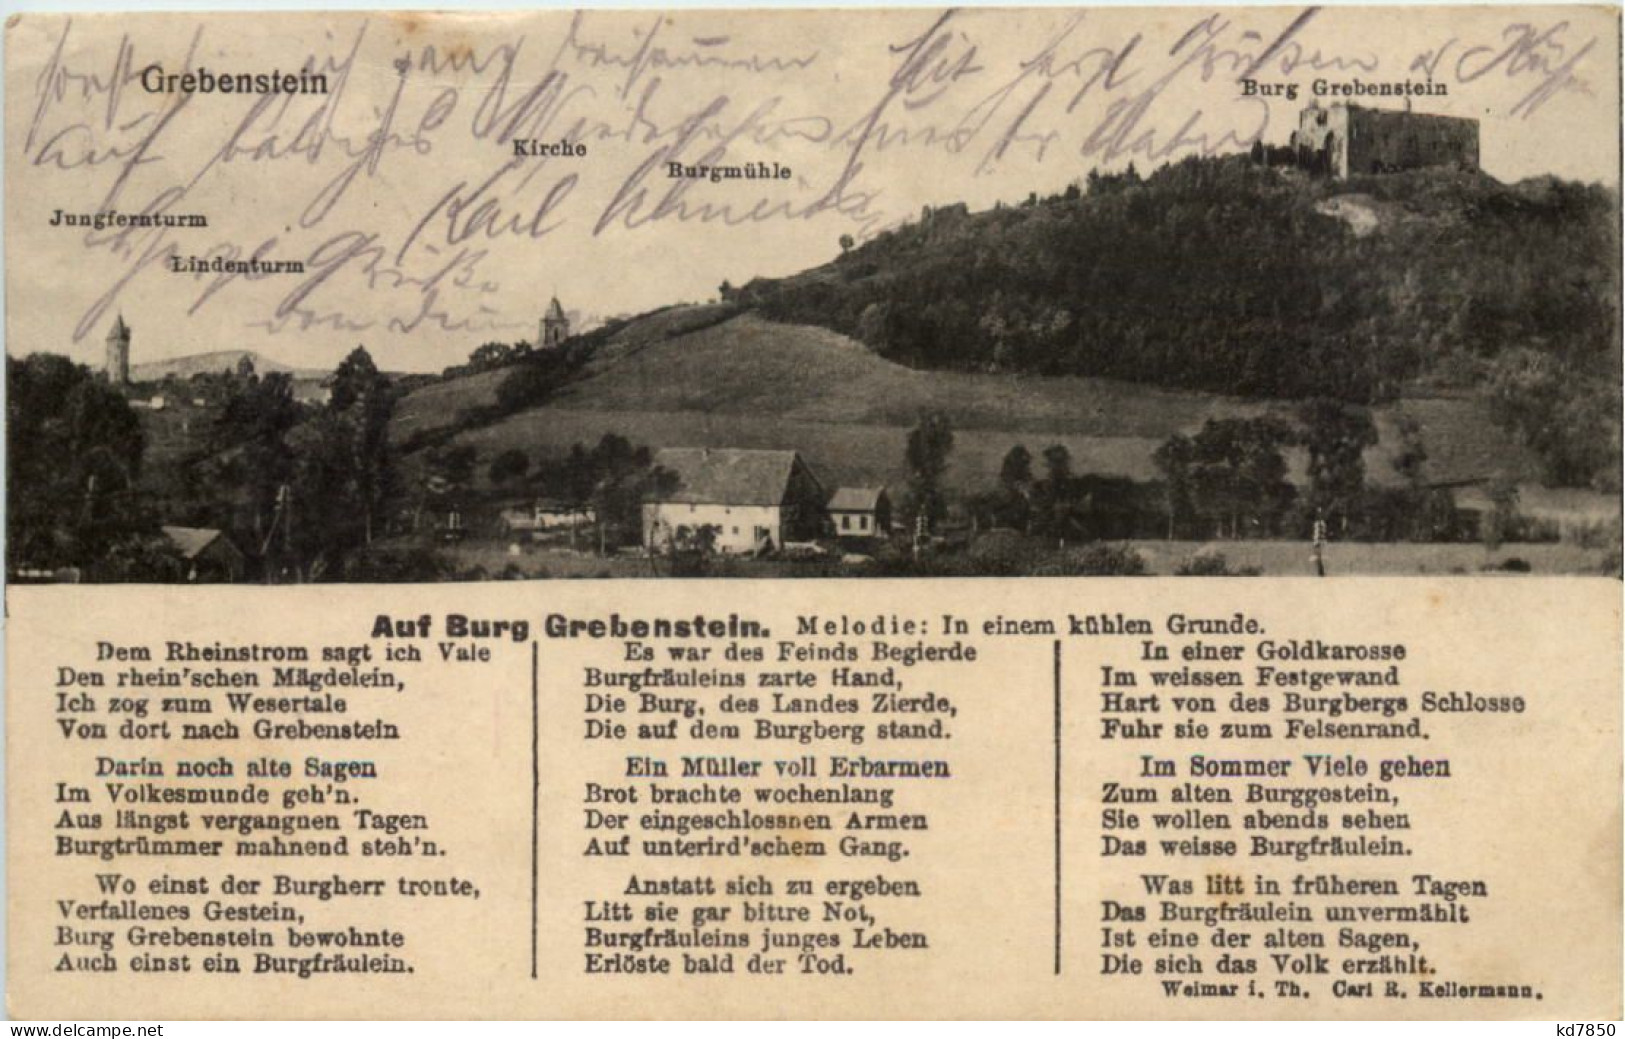 Grebenstein
Burg Grebenstein
Kirche
Burgmühle
Jungfernturm
Lindenturm
auf baldiges Wiedersehen
Karl Schneider
Grüße
von
Auf Burg Grebenstein. Melodie: In einem kühlen Grunde.
Dem Rheinstrom sagt ich Vale
Den rhein'schen Mägdelein,
Ich zog zum Wesertale
Von dort nach Grebenstein
Darin noch alte Sagen
Im Volkesmunde geh'n.
Aus längst vergangnen Tagen
Burgtrümmer mahnend steh'n.
Wo einst der Burgherr tronte,
Verfallenes Gestein,
Burg Grebenstein bewohnte
Auch einst ein Burgfräulein.
Es war des Feinds Begierde
Burgfräuleins zarte Hand,
Die Burg, des Landes Zierde,
Die auf dem Burgberg stand.
Ein Müller voll Erbarmen
Brot brachte wochenlang
Der eingeschlossnen Armen
Auf unterird'schem Gang.
Anstatt sich zu ergeben
Litt sie gar bittre Not,
Burgfräuleins junges Leben
Erlöste bald der Tod.
In einer Goldkarosse
Im weissen Festgewand
Hart von des Burgbergs Schlosse
Fuhr sie zum Felsenrand.
Im Sommer Viele gehen
Zum alten Burggestein,
Sie wollen abends sehen
Das weisse Burgfräulein.
Was litt in früheren Tagen
Das Burgfräulein unvermählt
Ist eine der alten Sagen,
Die sich das Volk erzählt.
Weimar i. Th. Carl R. Kellermann.
delcampe.net
kd7850